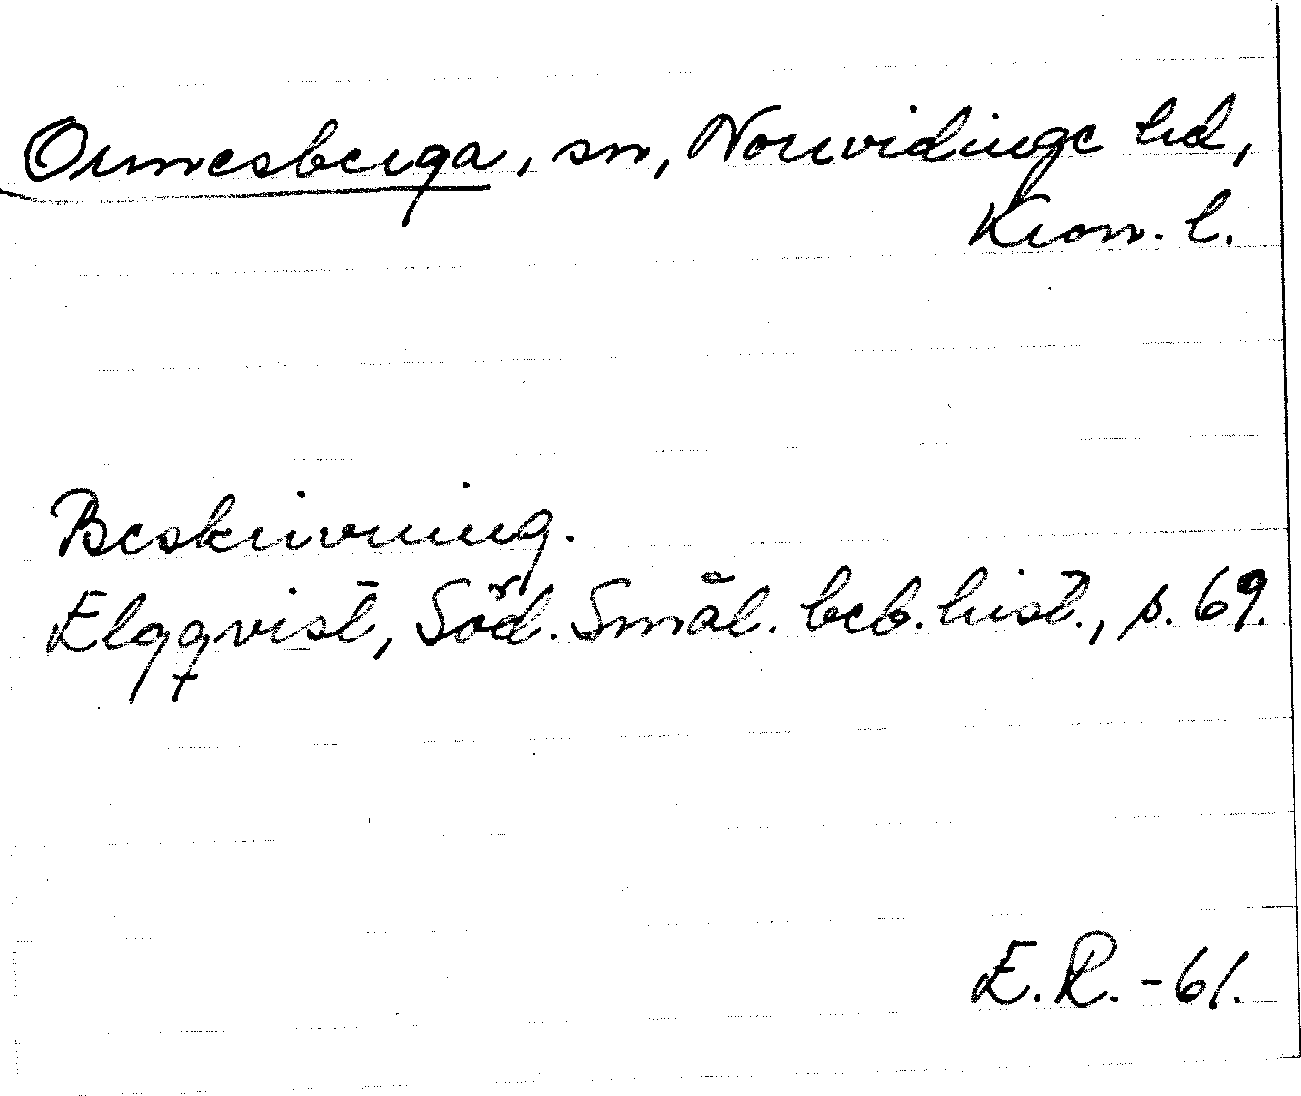 Ormesberga, sn, Norrvidinge hd,
Kron. l.
Beskrivning.
Elgqvist, Söd. Smål. beb. hist., s. 69.
E.R. -61.